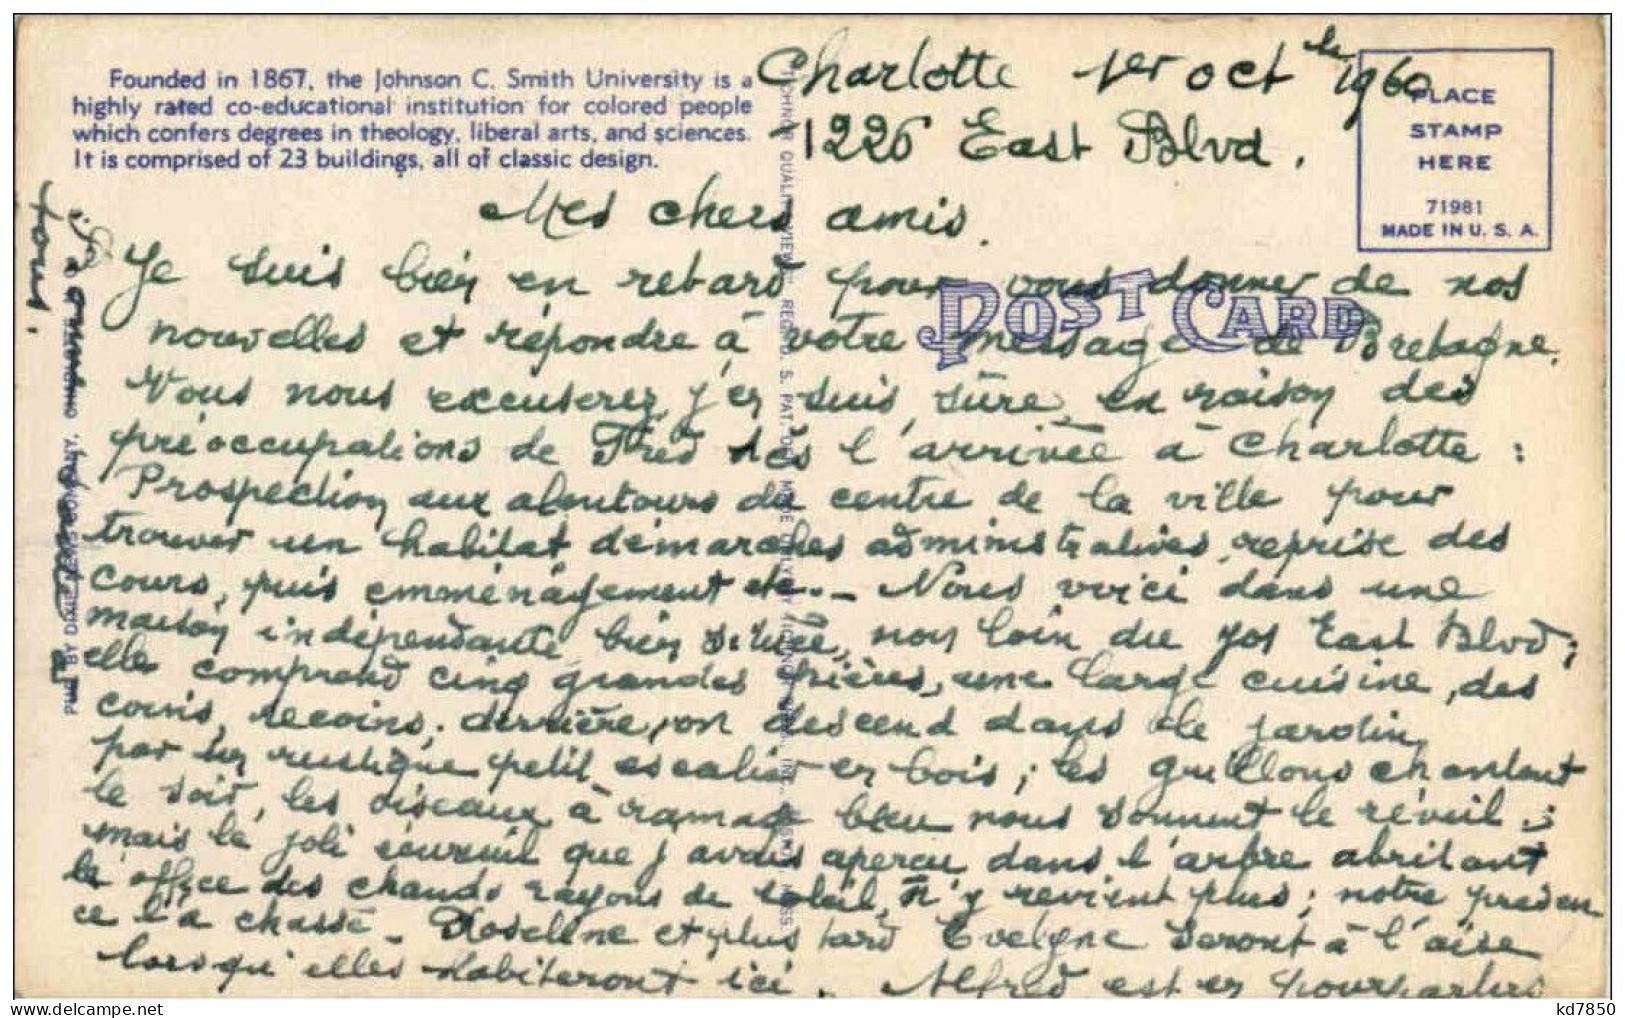 Founded in 1867, the Johnson C. Smith University is a
highly rated co-educational institution for colored people
which confers degrees in theology, liberal arts, and sciences.
It is comprised of 23 buildings, all of classic design.
Charlotte 1er oct le 1960
1226 East Blvd.
PLACE
STAMP
HERE
71981
MADE IN U. S. A.
POST CARD
Mes chers amis.
Je suis bien en retard pour vous donner de nos
nouvelles et répondre à votre message de Bretagne.
Vous nous excuserez, j'en suis sûre, en raison des
préoccupations de Fred dès l'arrivée à Charlotte :
Prospection aux alentours du centre de la ville pour
trouver un habitat démarches administratives, reprise des
cours, puis emménagement etc.. - Nous voici dans une
maison indépendante bien située, non loin du 401 East Blvd ;
elle comprend cinq grandes pièces, une large cuisine, des
coins, recoins ; derrière, on descend dans le jardin
par un rustique petit escalier en bois ; les grillons chantent
le soir, les oiseaux à ramage bleu nous donnent le réveil ;
mais le joli écureuil que j'avais aperçu dans l'arbre abritant
le office des chauds rayons de soleil, n'y revient plus ; notre présen
ce l'a chassé - Roseline et plus tard Evelyne seront à l'aise
lorsqu'elles habiteront ici. Alfred est en pourparlers
tous.